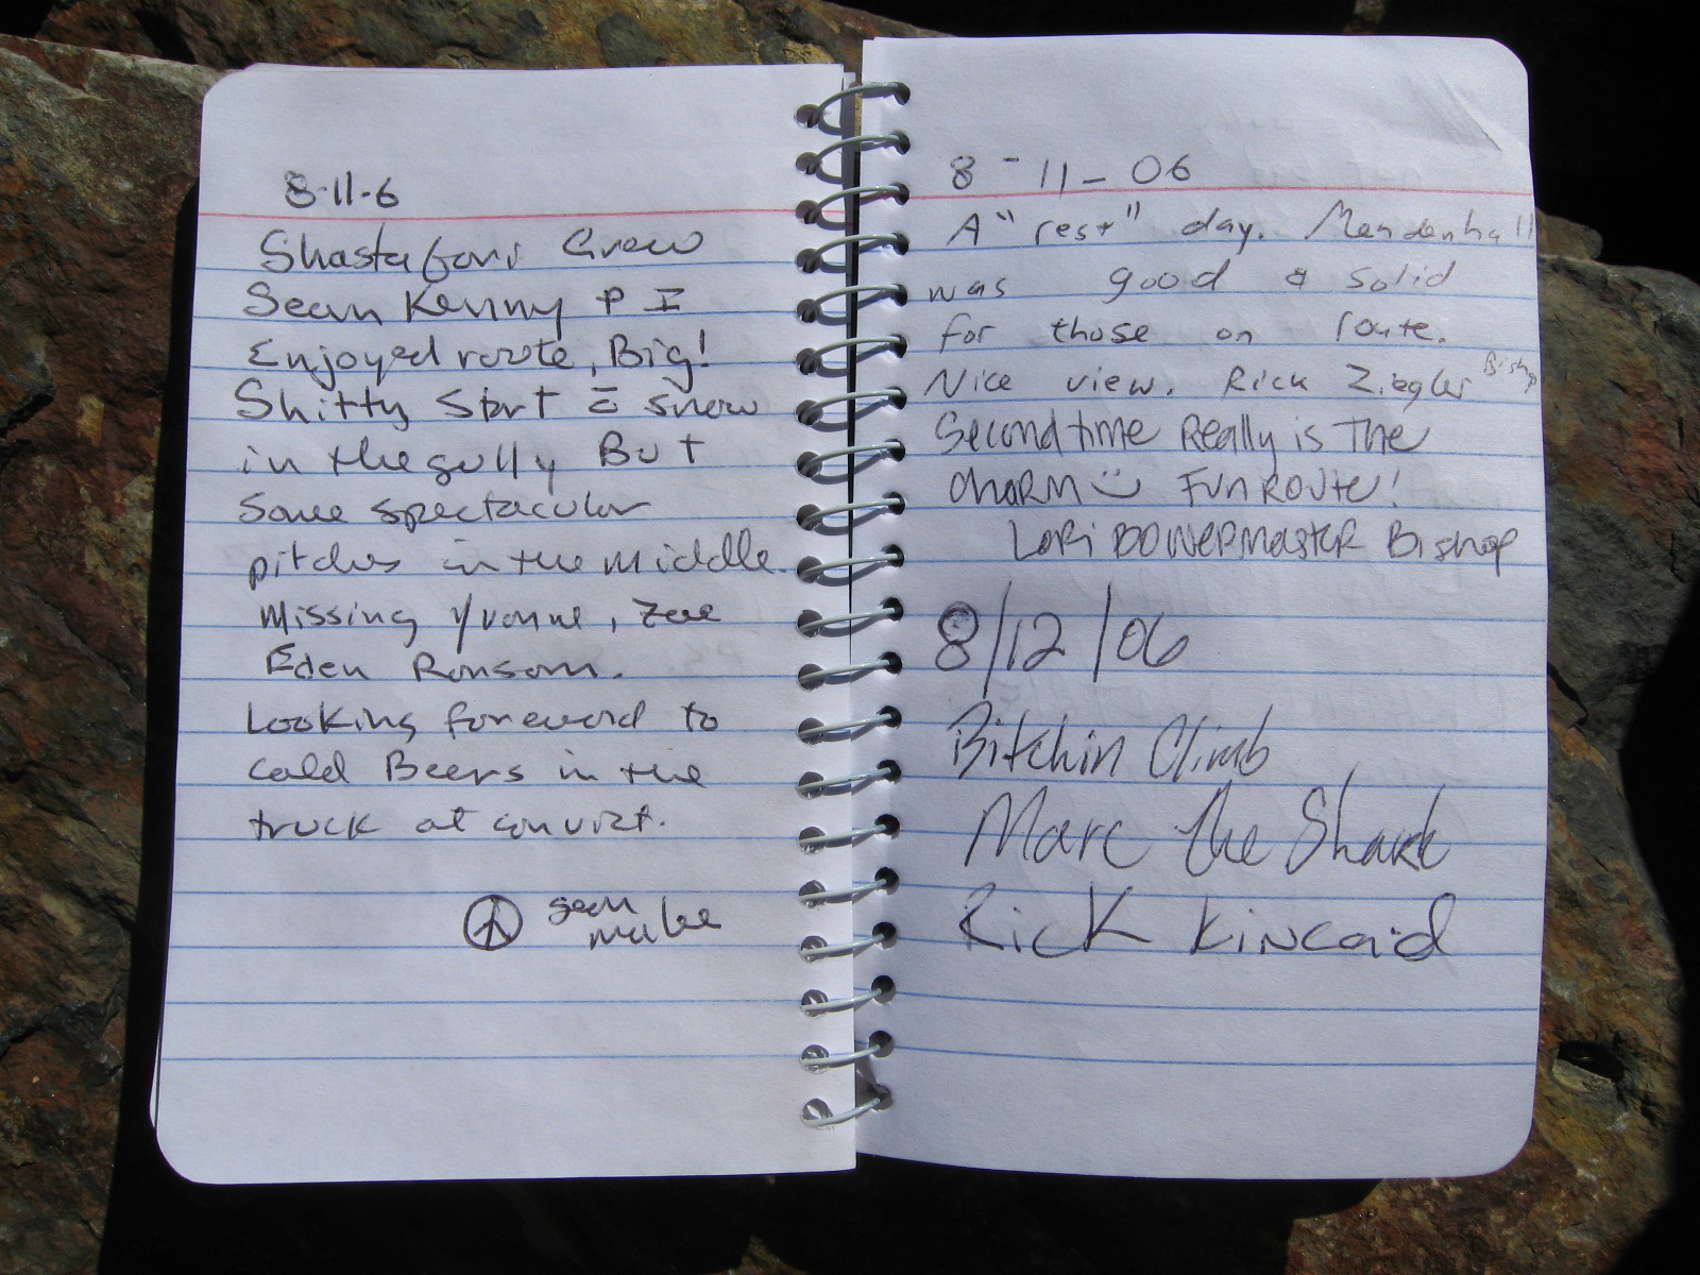 8-11-6
Shastafari Crew
Sean Kenny P I
Enjoyed route, Big!
Shitty Start c̄ snow
in the gully But
Some spectacular
pitches in the middle.
Missing Yvonne, Zoe
Eden Ransom.
Looking foreword to
cold Beers in the
truck at convict.
Sean
8-11-06
A "rest" day. Mendenhall
was good & solid
for those on route.
Nice view. Rick Ziegler Bishop
Second time Really is The
chaRM FUN ROUte!
LoRi BOWERMasteR Bishop
8/12/06
Bitchin Climb
Marc the Shark
Rick Kincaid